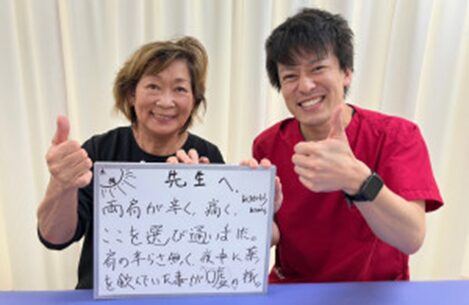 先生へ。
両肩が辛く、痛く、
ここを選び通いました。
肩の辛さ無く、夜中に薬
を飲んでいた事が